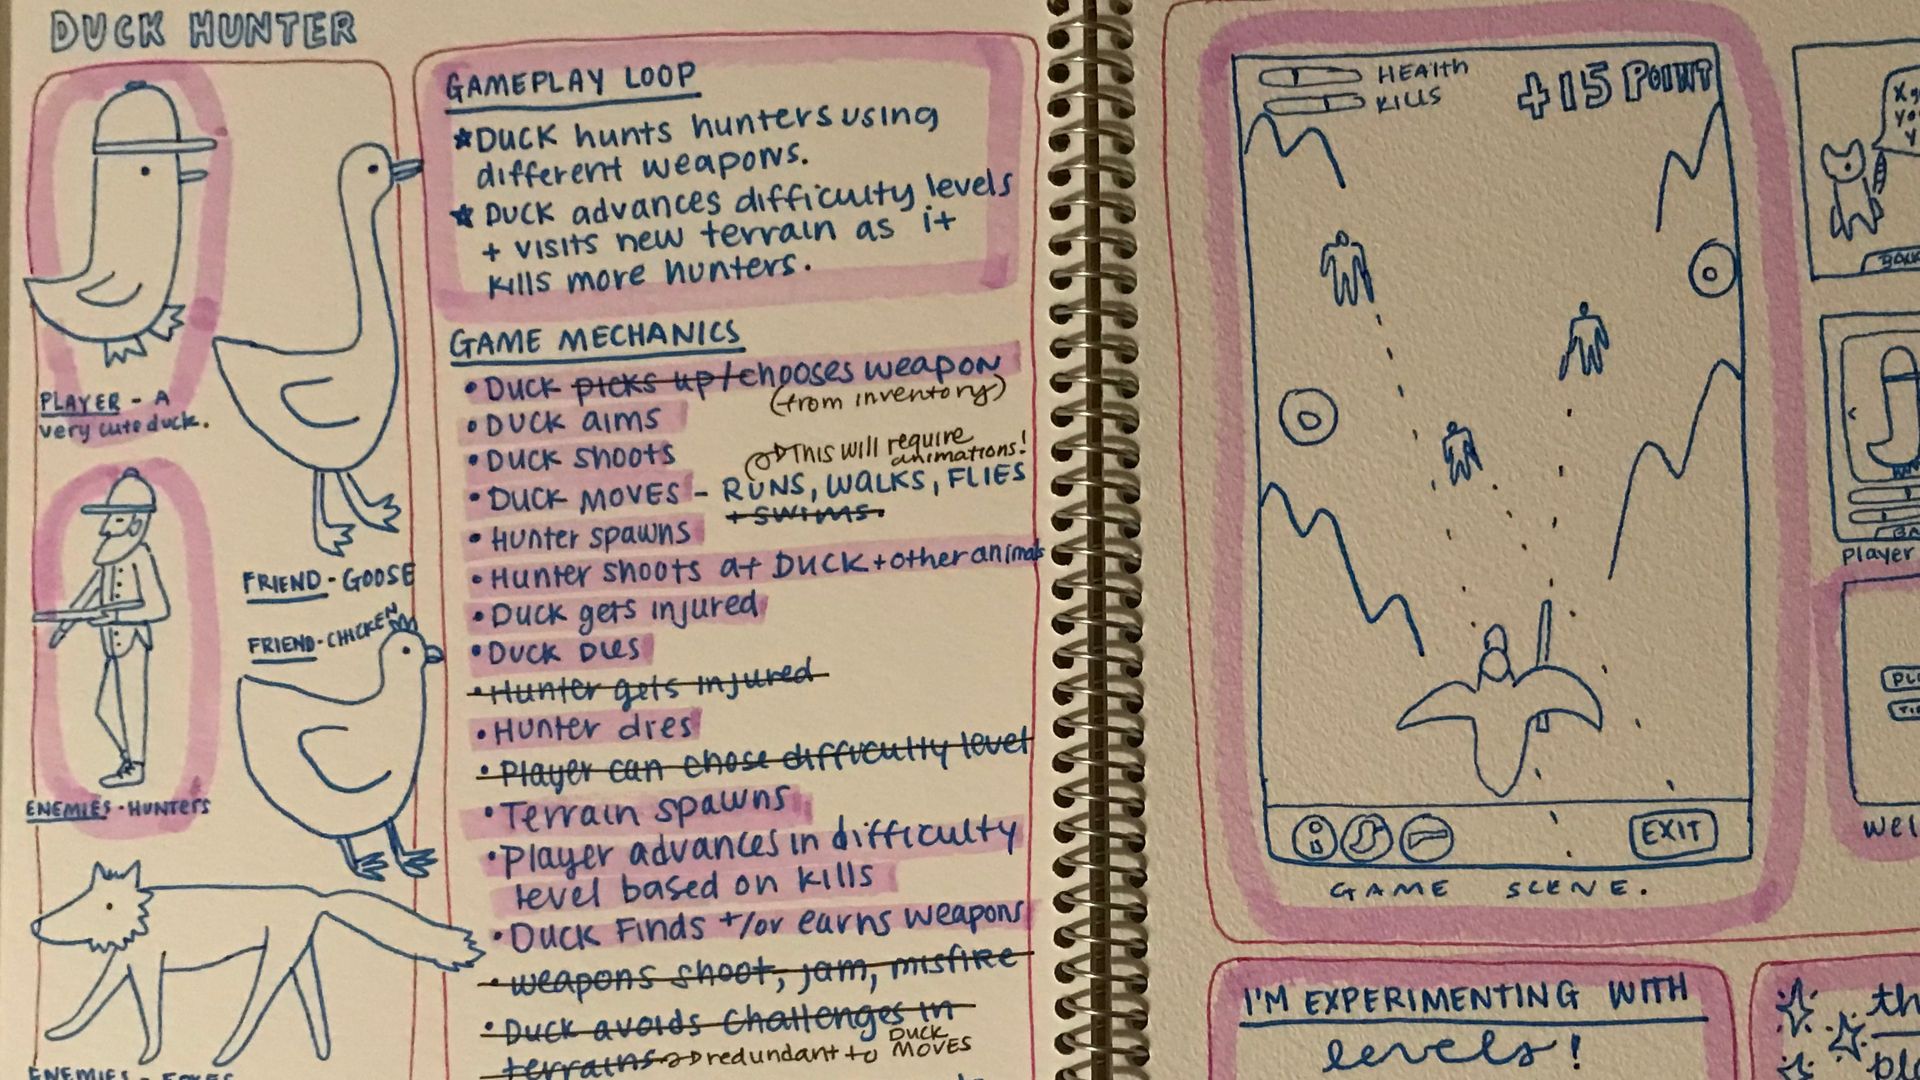 DUCK HUNTER
PLAYER - A
very cute duck.
FRIEND - GOOSE
FRIEND - CHICKEN
ENEMIES - HUNTERS
GAMEPLAY LOOP
★ DUCK hunts hunters using
different weapons.
★ DUCK advances difficulty levels
+ visits new terrain as it
kills more hunters.
GAME MECHANICS
• DUCK picks up/chooses weapon
(from inventory)
• DUCK aims
• DUCK shoots
This will require
animations!
• DUCK MOVES - RUNS, WALKS, FLIES
+ SWIMS.
• Hunter spawns
• Hunter shoots at DUCK + other animals
• Duck gets injured
• DUCK DIES
• Hunter gets injured
• Hunter dies
• Player can chose difficulty level
• Terrain spawns
• Player advances in difficulty
level based on kills
• DUCK FINDS +/or earns weapons
• weapons shoot, jam, misfire
• Duck avoids challenges in
terrains. redundant to DUCK
MOVES
HEALTH
KILLS
+15 POINT
EXIT
GAME SCENE.
I'M EXPERIMENTING WITH
levels!
Player